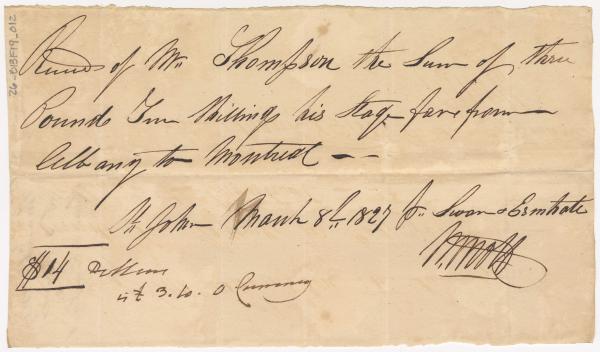 Recved of Mr Thompson the Sum of three
Pounds Ten Shillings his Stage fare from
Albany to Montreal — —
St John March 8th 1827 for Swan &
$14 Dollars
is £ 3.10.0 Currency
26-B18F19_012